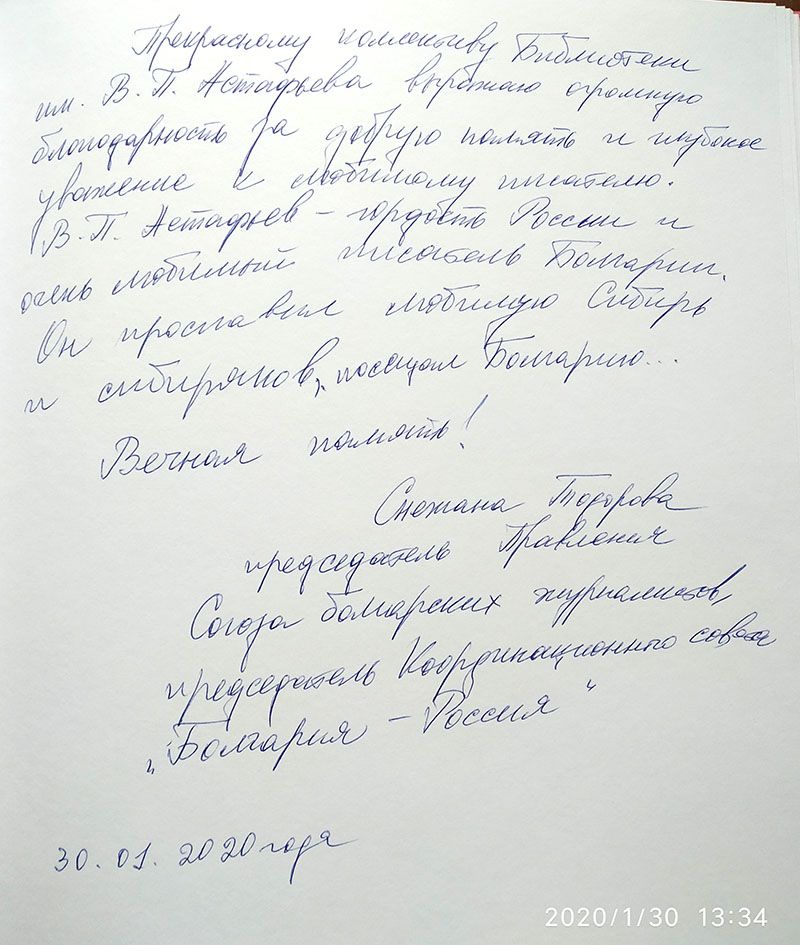 Прекрасному коллективу Библиотеки
им. В. П. Астафьева выражаю огромную
благодарность за добрую память и глубокое
уважение к любимому писателю.
В. П. Астафьев – гордость России и
очень любимый писатель Болгарии.
Он прославил любимую Сибирь
и сибиряков, посещал Болгарию...
Вечная память!
Снежана Тодорова
председатель Правления
Союза болгарских журналистов,
председатель Координационного совета
„Болгария – Россия“
30.01.2020 года
2020/1/30 13:34